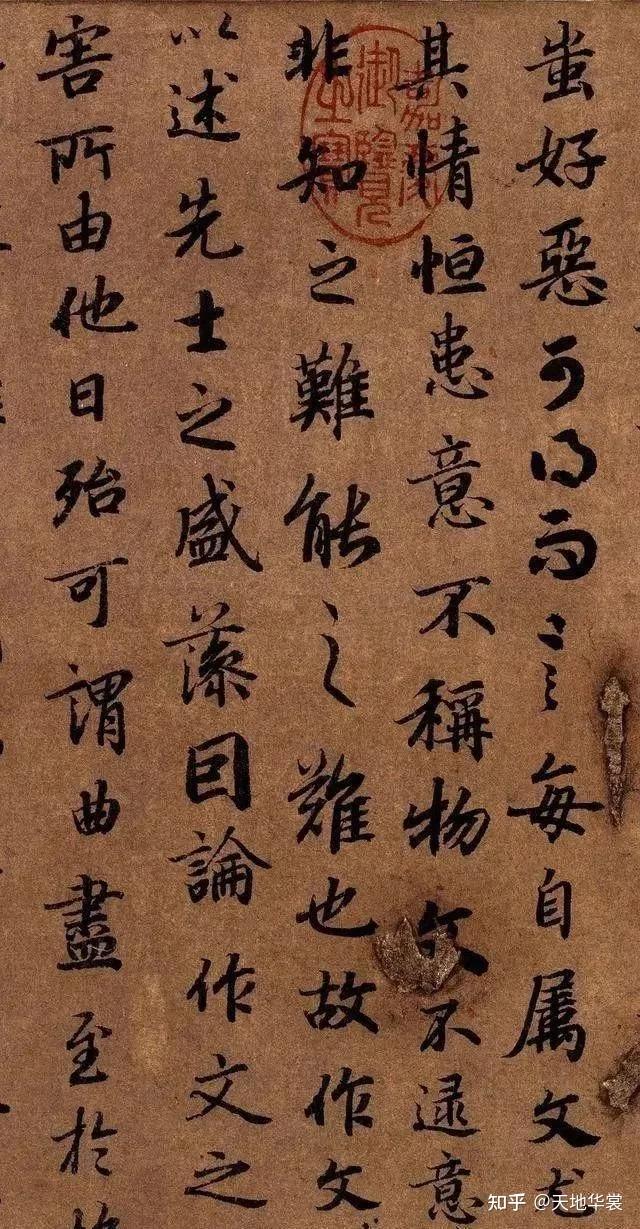 蚩好惡可得而言每自属文尤
其情恒患意不稱物文不逮意
非知之難能之難也故作文
以述先士之盛藻因論作文之
害所由他日殆可謂曲盡至於
嘉慶御覽之寶
知乎 @天地华裳